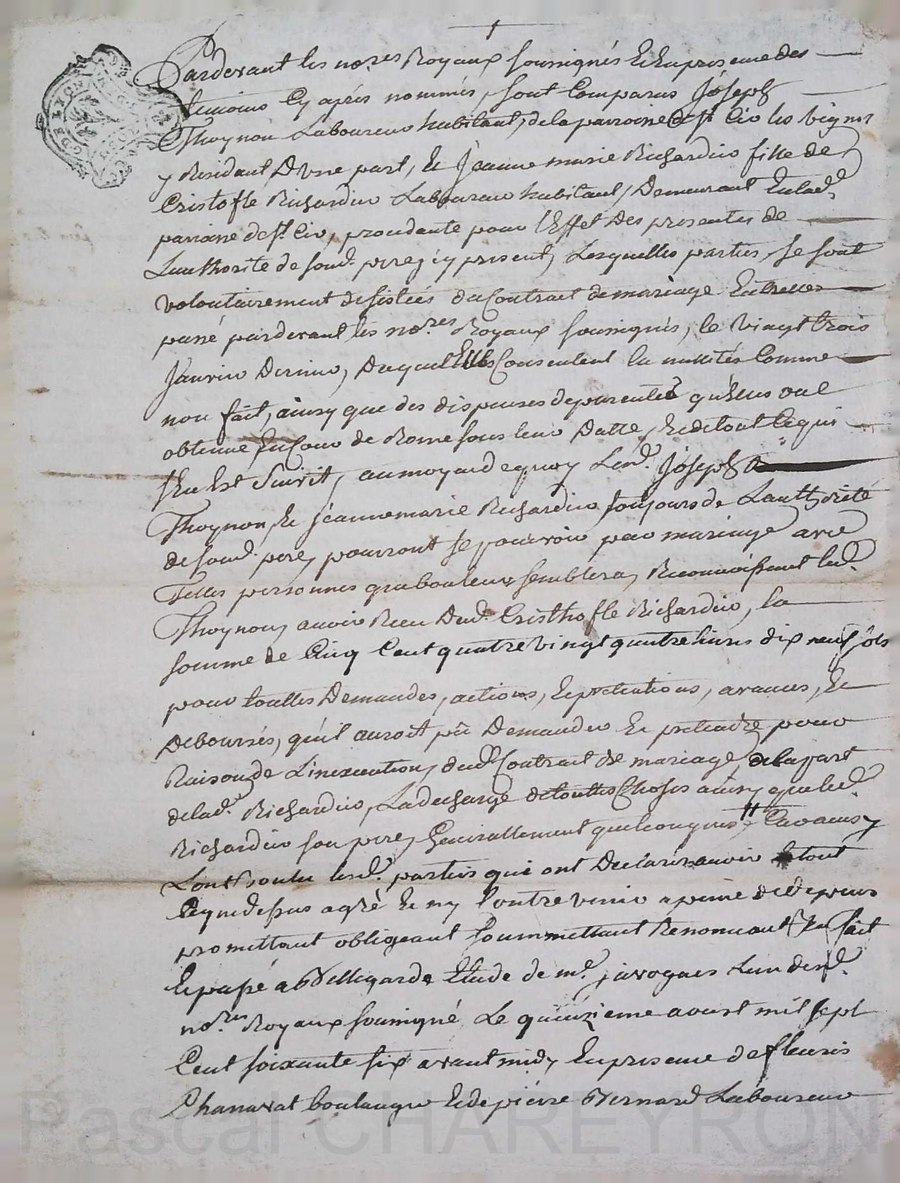 Pardevant les no.res Royaux soussignés et En presence des
temoins Cy aprés nommés, sont Comparus Joseph
Thoynon Laboureur habitant, de la parroisse de St Cir les vignes
y Residant D'une part, et Jeanne marie Richardier fille de
Cristofle Richardier Laboureur habitant, Demeurant En lad.e
parroisse de St. Cir, procedante pour l'Effet Des presentes de
L'authorité de sond. pere, icy present, Lesquelles parties, se sont
volontairement desistées du Contrat de mariage Entre elles
passé pardevant les no.res Royaux soussignés, le vingt trois
Janvier Dernier, Duquel Elles Consentent la nullités Comme
non fait, ainsy que des dispenses de parenté qu'elles ont
obtenue En Cour de Rome sous leur Datte, et de tout Ce qui
s'En Est Suivit, au moyen de quoy Lesd. Joseph
Thoynon et Jeanne marie Richardier toujours de L'authorité
de sond. pere, pourront se pourvoir par mariage avec
Telles personnes que bon leur semblera, Reconnoissant led.
Thoynon, avoir Reçu Dud. Cristhofle Richardier, la
somme de Cinq Cent quatre vingt quatre livres dix neuf sols
pour touttes Demandes, actions, et pretentions, avances, et
Deboursés, qu'il auroit pû Demander et pretendre pour
Raison de L'inexecution, dud. Contrat de mariage, de la part
de lad.e Richardier, La decharge de touttes Choses ainsy que led.
Richardier son pere, Generallement quelconques,
L'ont voulu lesd. parties qui ont Declaré avoir le tout
Ce que dessus agré et n'y Contrevenir a peine de depens
promettant obligeant soummettant Renonceant fait
Et passé a Bellegarde Etude de me. javogues L'un desd.
no.res Royaux soussigné Le quinzieme avoust mil sept
Cent soixante six avant midy En presence de fleuris
Chanavat boulanger et de piérre Bernard Laboureur
Pascal CHAREYRON